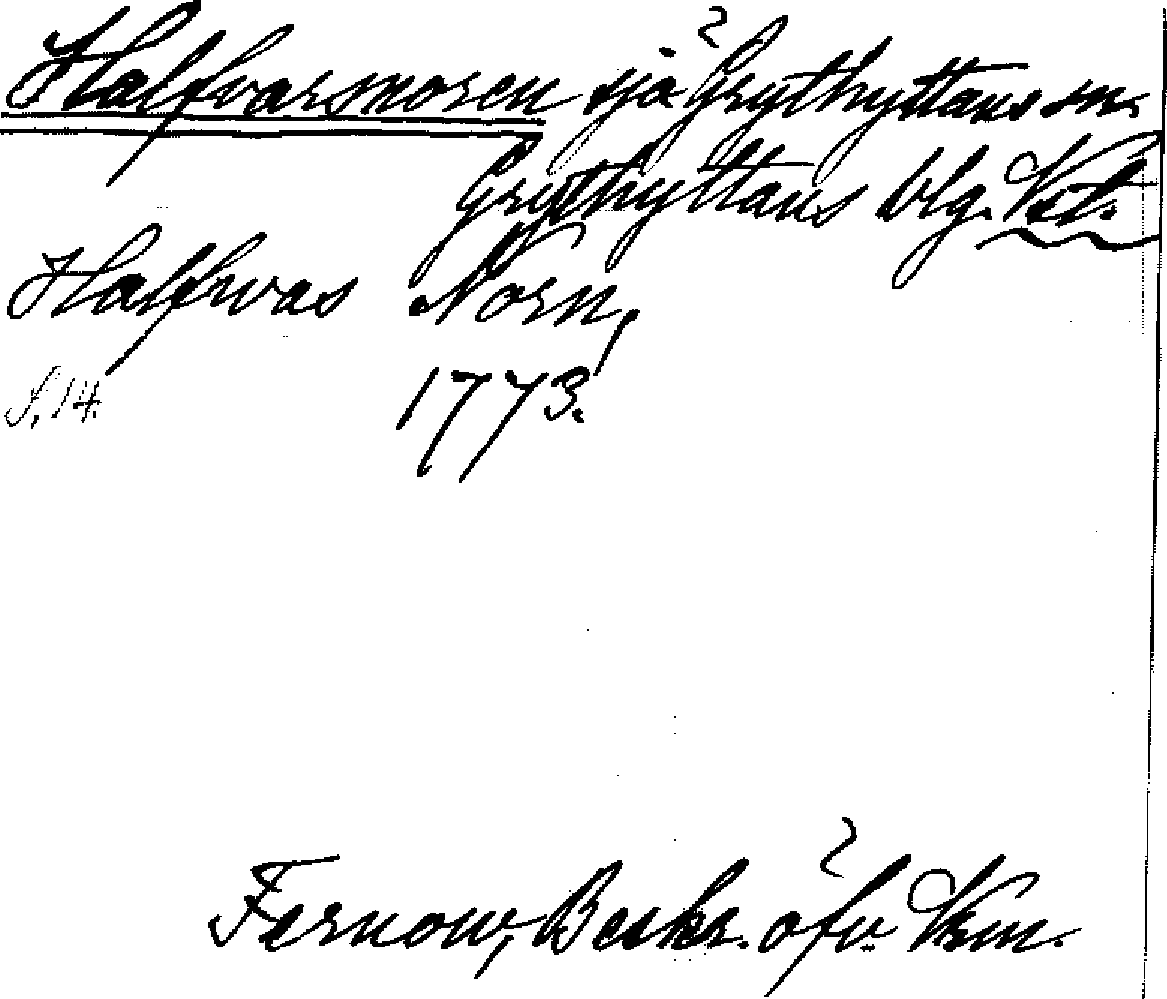 Halfvarsnoren sjö Grythyttans sn.
Grythyttans blg. Vstl.
Halfwas Norn,
S. 14. 1773.
Fernow, Beskr. öfv. Vrm.